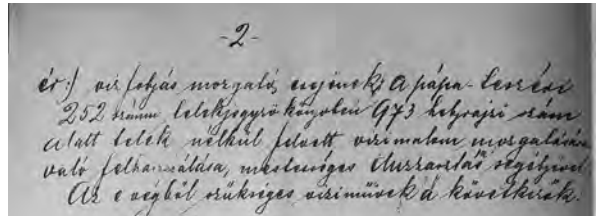 -2-
ér:/ víz folyás mozgató esésének, a pápa-teszéri
252 számu telekjegyzőkönyvben 973 helyrajzi szám
alatt telek nélkül felvett vizimalom mozgatására
való felhasználása, mesterséges duzzasztás segélyével
Az e végből szükséges vizi művek a következők: